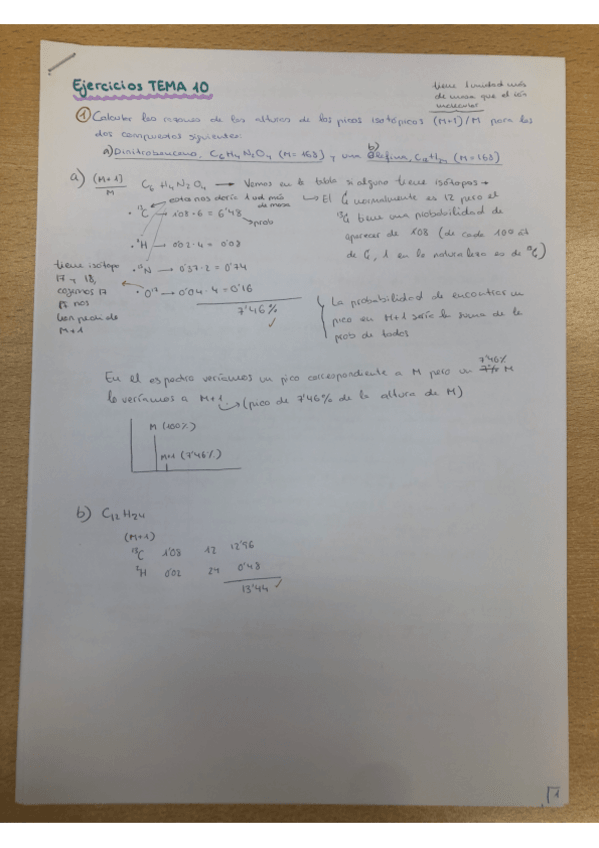 Ejercicios TEMA 10
tiene 1 unidad más
de masa que el ión
molecular
① Calcular las razones de las alturas de los picos isotópicos (M+1)/M para los
dos compuestos siguientes:
a) Dinitrobenceno, C6H4N2O4 (M=168) y una b) Olefina, C12H24 (M=168)
a) (M+1)/M C6H4N2O4 → Vemos en la tabla si alguno tiene isótopos →
esta nos daría 1 ud más de masa
↳ El C normalmente es 12 pero el
13C tiene una probabilidad de
aparecer de 1'08 (de cada 100 át
de C, 1 en la naturaleza es de 13C)
• 13C → 1'08 · 6 = 6'48
prob
• 2H → 0'02 · 4 = 0'08
• 15N → 0'37 · 2 = 0'74
• O17 → 0'04 · 4 = 0'16
7'46% ✓
tiene isótopo
17 y 18,
cogemos 17
nos
M+1
La probabilidad de encontrar un
pico en M+1 sería la suma de la
prob de todos
En el espectro veríamos un pico correspondiente a M pero un 7'46% M
lo veríamos a M+1. → (pico de 7'46% de la altura de M)
M (100%)
M+1 (7'46%)
b) C12H24
(M+1)
13C 1'08 12 12'96
2H 0'02 24 0'48
13'44 ✓
1